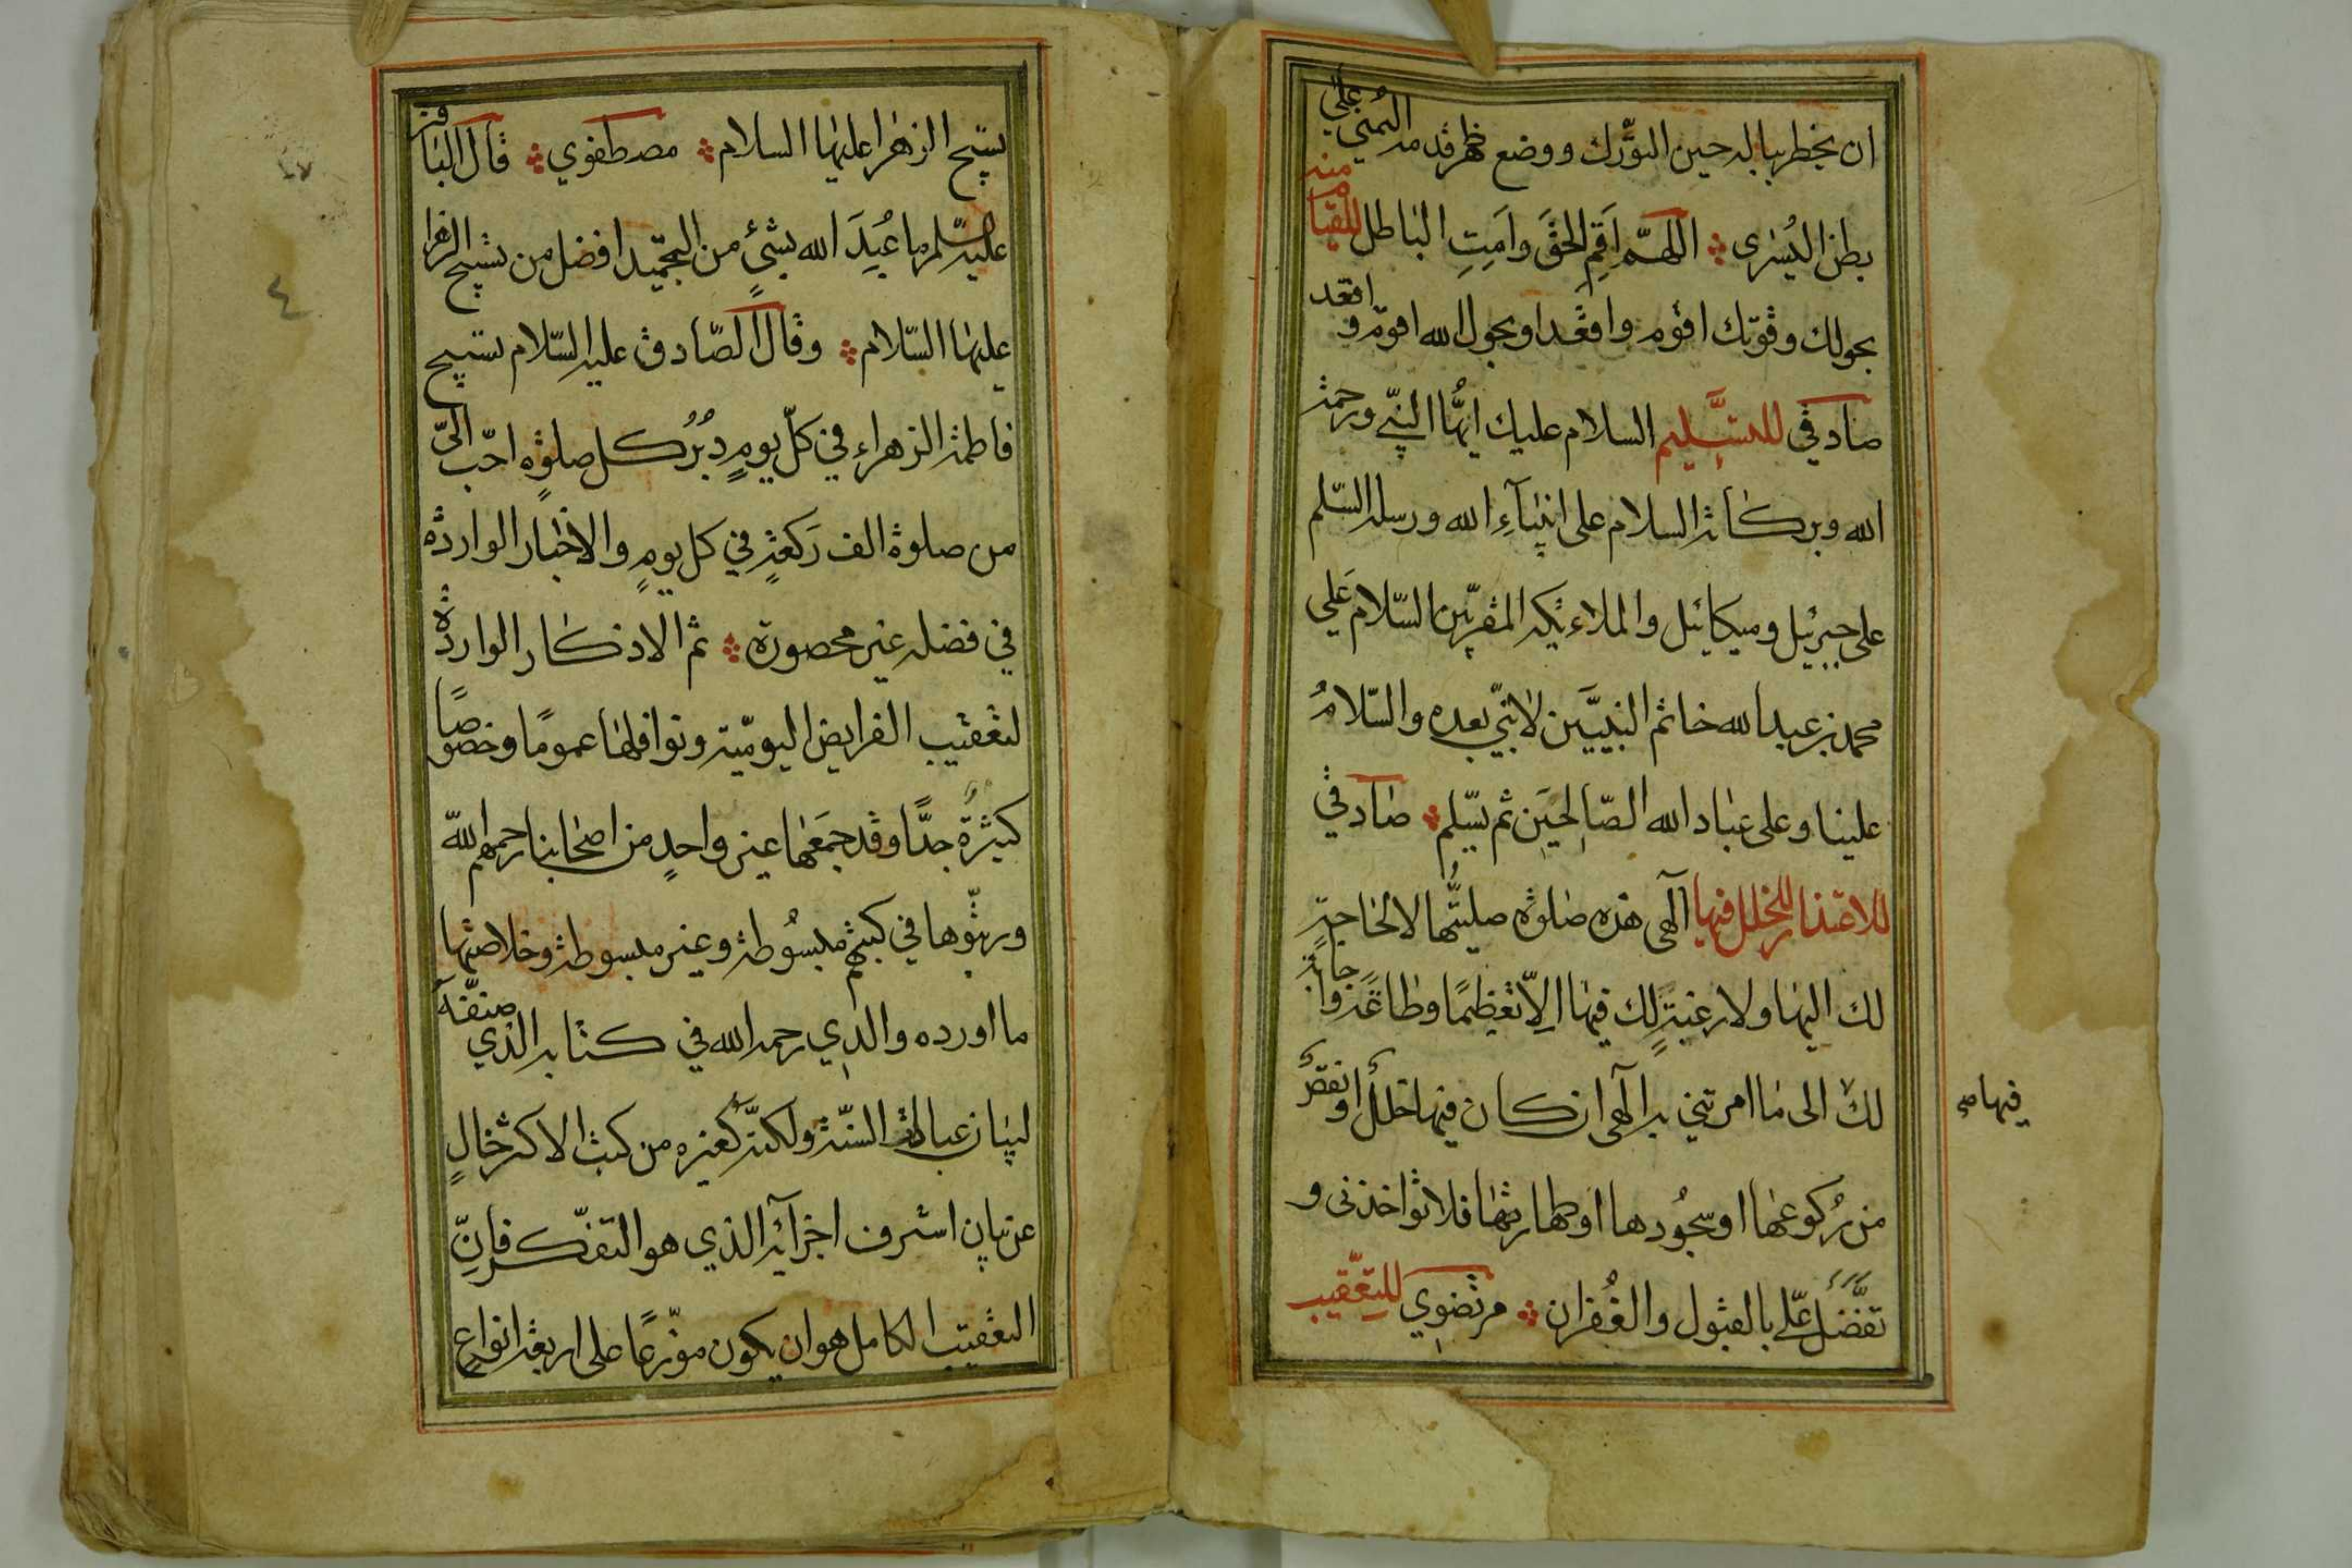 ان يخطر بباله حين التورّك ووضع ظهر قدمه اليمني علي
بطن اليُسرى اللهمّ اَقِمِ الحَقَّ واَمِتِ الباطل للقيام منه
بحولك وقوّتك اقوم واقعد او بحول الله اقوم و اقعد
صادقي للتسليم السلام عليك ايّها النبّي ورحمة
الله وبركاته السلام على انبيآءِ الله ورسله السّلم
على جبرئيل وميكائيل والملاءئكه المقربّين السّلام عَلي
محمد بن عبدالله خاتم النبييَّن لا نبيّ بعده والسّلامُ
علينا وعلى عباد الله الصّالحيَن ثم يسّلم صادقي
للاعتذار للخلل فيها آلهى هذه صلوة صليتُّها لا لحاجةٍ
لك اليها ولا رغبةٍ لك فيها اِلاّ تعظيمًا وطاعةً واجابةً
لك الى ما امرتني به آلهى ان كان فيها خللٌ او نقصٌ
فيها
من رُكوعها او سجُودها او طهارتها فلا تؤاخذنى و
تفضّل عَلّي بالقبول والغُفران مرتضوي للتعّقيب
تسبيح الزهرا عليها السلام مصطفوي قال الباقر
عليه السّلم ما عُبِدَ الله بشيءٍ من التحميد افضل من تسبيح الزهرا
عليها السّلام وقال الصّادق عليه السّلام تسبيح
فاطمة الزهراء في كلّ يومٍ دُبُر كل صلوةٍ احّب اليّ
من صلوة الف رَكعةٍ في كل يومٍ والاخبار الواردة
في فضله غير محصورة ثم الاذكار الواردة
لتعقيب الفرايض اليوميّة ونوافلها عمومًا وخصوصًا
كثيرةٌ جدًّا وقد جمَعَها غير واحدٍ من اصحابنا رحمهم الله
ورتبّوها في كتبهم مبسُوطة وغير مبسوطة وخلاصتها
ما اورده والدِي رحمه الله في كتابه الذي صنفّه
لبيان عبادة السنّة ولكنّه كغيره من كتب الاكثر خالٍ
عن بيان اشرف اجزآئه الذي هو التفّكر فانِّ
التعقيب الكامل هو ان يكون موّزعًا على اربعة انواعٍ
٤